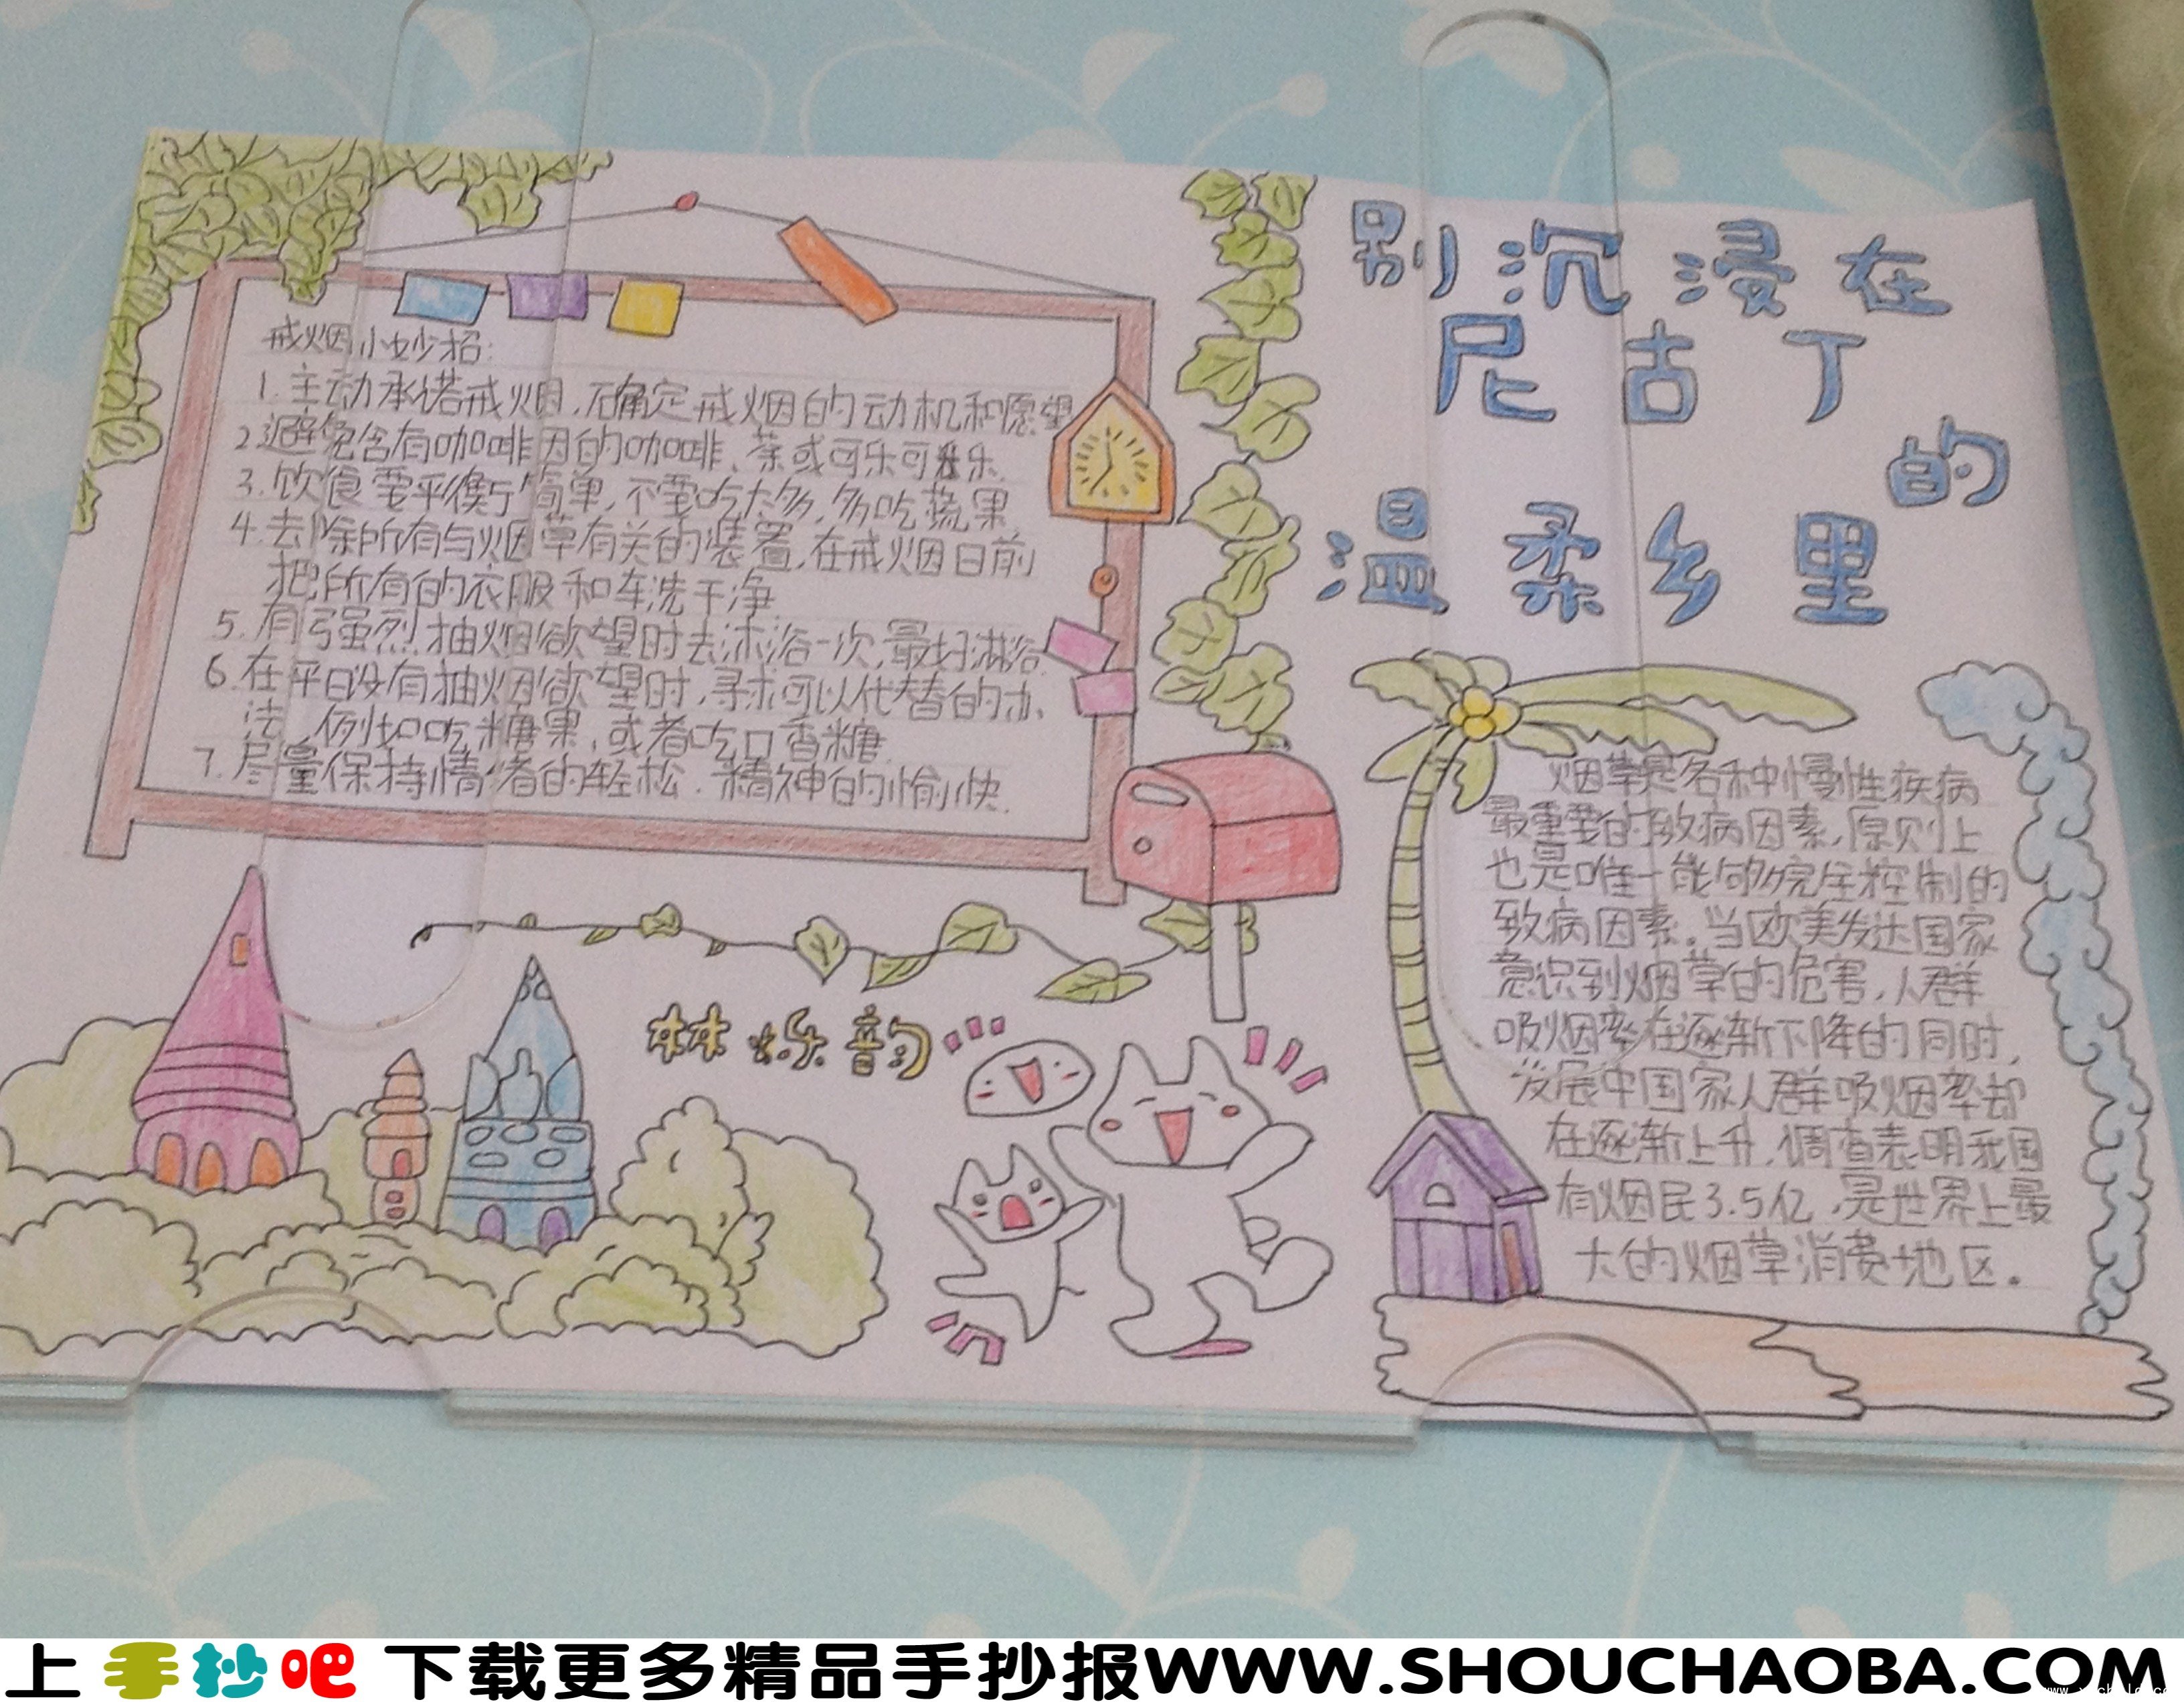 别沉浸在
尼古丁
的
温柔乡里
戒烟小妙招:
1.主动承诺戒烟,确定戒烟的动机和愿望
2.避免含有咖啡因的咖啡、茶或可乐可乐.
3.饮食要平衡简单,不要吃太多,多吃蔬果
4.去除所有与烟草有关的装置,在戒烟日前
把所有的衣服和车洗干净
5.有强烈抽烟欲望时去沐浴一次,最好淋浴.
6.在平日没有抽烟欲望时,寻求可以代替的办
法,例如吃糖果,或者吃口香糖.
7.尽量保持情绪的轻松.精神的愉快.
林烁韵
烟草是各种慢性疾病
最重要的致病因素,原则上
也是唯一能够完全控制的
致病因素。当欧美发达国家
意识到烟草的危害,人群
吸烟率在逐渐下降的同时,
发展中国家人群吸烟率却
在逐渐上升,调查表明我国
有烟民3.5亿,是世界上最
大的烟草消费地区。
上手抄吧 下载更多精品手抄报WWW.SHOUCHAOBA.COM